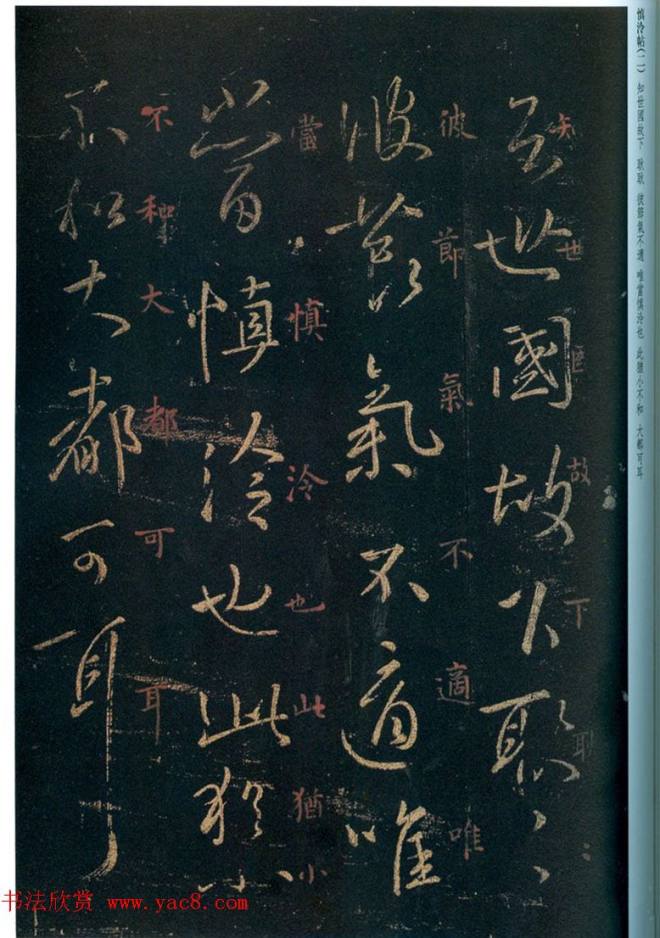 慎泠帖(二) 知世國故下 耿耿 彼節氣不適 唯當慎泠也 此猶小不和 大都可耳
知世國故下耿〻
知世國故下耿〻
彼節氣不適唯
彼節氣不適唯
當慎泠也此猶小
當慎泠也此猶小
不和大都可耳
不和大都可耳
书法欣赏 www.yac8.com